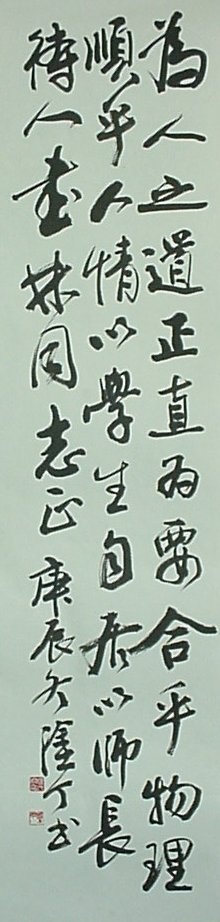 為人之道正直為要合乎物理
順乎人情以學生自居以師長
待人書林同志正庚辰冬漢丁书